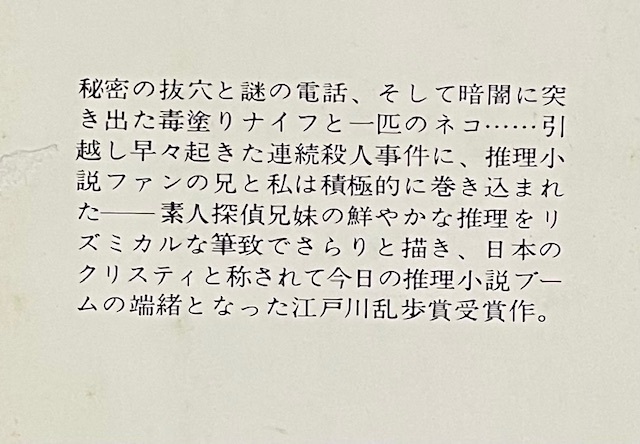 秘密の抜穴と謎の電話、そして暗闇に突
き出た毒塗りナイフと一匹のネコ……引
越し早々起きた連続殺人事件に、推理小
説ファンの兄と私は積極的に巻き込まれ
た――素人探偵兄妹の鮮やかな推理をリ
ズミカルな筆致でさらりと描き、日本の
クリスティと称されて今日の推理小説ブー
ムの端緒となった江戸川乱歩賞受賞作。